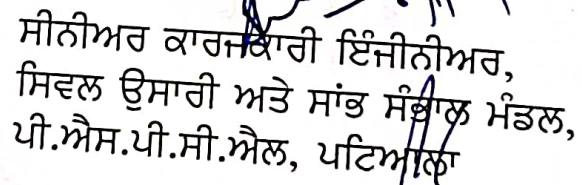 ਸੀਨੀਅਰ ਕਾਰਜਕਾਰੀ ਇੰਜੀਨੀਅਰ,
ਸਿਵਲ ਉਸਾਰੀ ਅਤੇ ਸਾਂਭ ਸੰਭਾਲ ਮੰਡਲ,
ਪੀ.ਐਸ.ਪੀ.ਸੀ.ਐਲ, ਪਟਿਆਲਾ